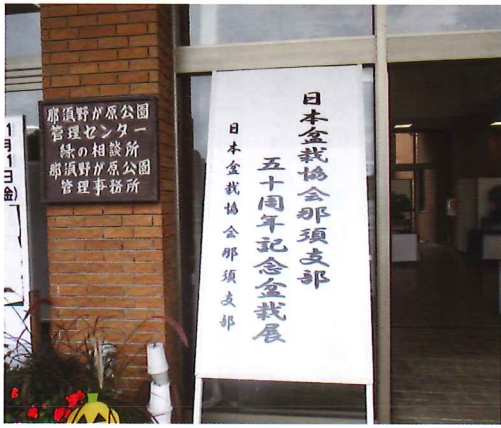 那須野が原公園
管理センター
緑の相談所
那須野が原公園
管理事務所
1
月
1
日
(金)
日本盆栽協会那須支部
五十周年記念盆栽展
日本盆栽協会那須支部